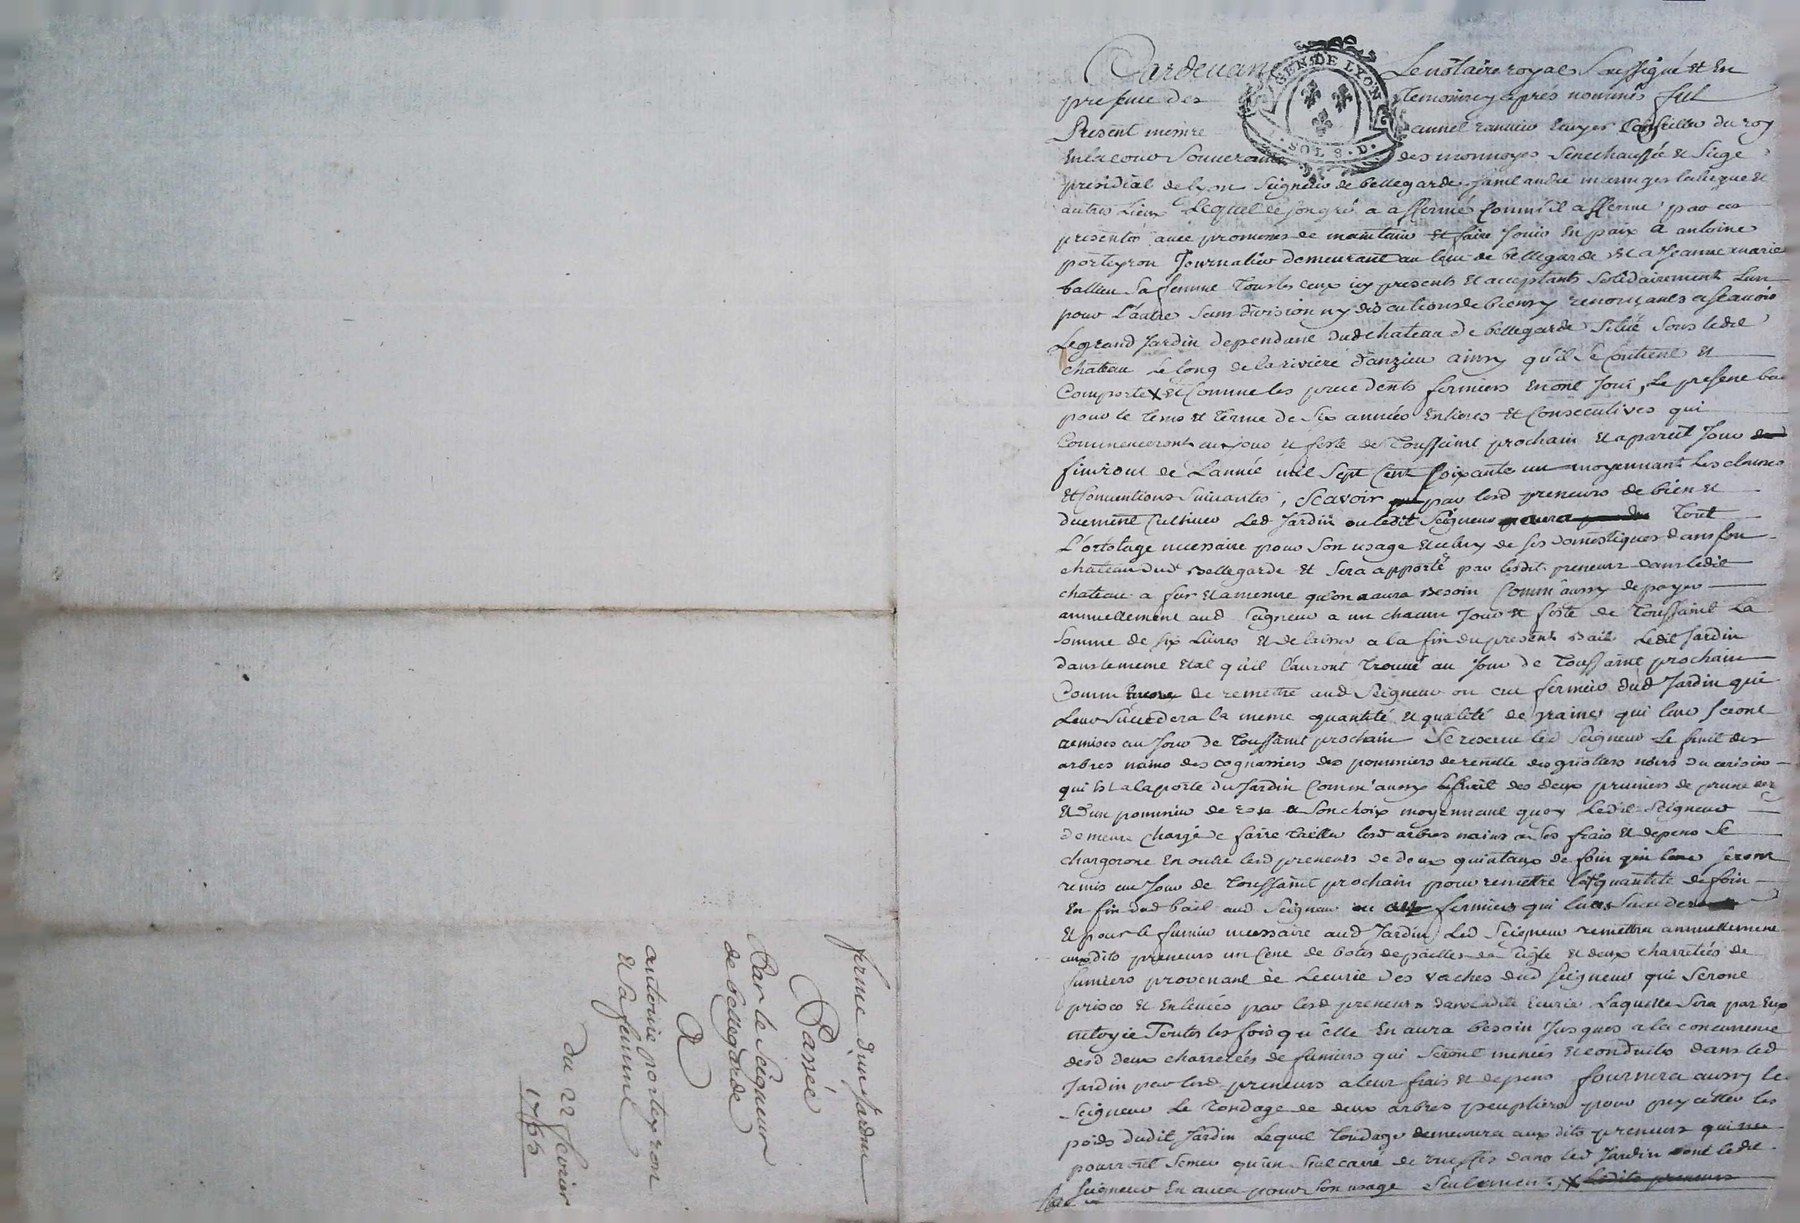 Pardevant Le notaire royal Soussigné et En
presence des temoins cy après nommés fut
Present messire Ecuyer Conseiller du roy
En la cour Souveraine des monnoyes Senechaussée et Siege
presidial de lyon Seigneur de bellegarde Saint andré
autres Lieux Lequel de son gré a affermé Comm'il afferme par ces
presentes avec promesse de maintenir et faire Jouir En paix a antoine
porteyron Journalier demeurant au lieu de bellegarde et a Jeanne marie
ballieu Sa femme tous les deux icy presents et acceptants Solidairement L'un
pour L'autre Sans division ny discution de biens y renonçants a scavoir
Le grand Jardin dependant dud chateau de bellegarde Situé Sous ledit
chateau Le long de la riviere d'anzieu ainsy qu'il Se Contient et
Comporte X et Comme les precedents fermiers En ont Joui, Le present bail
pour le tems et terme de Six années Entieres et Consecutives qui
Commenceront au Jour et feste de Toussaint prochain et a pareil Jour
finiront de L'année mil Sept Cent Soixante un moyennant Les clauses
et Conventions Suivantes, Scavoir par lesd preneurs de bien et
duement Cultiver Led Jardin ou ledit Seigneur tout
L'ortolage necessaire pour Son usage et celuy de Ses domestiques dans son
chateau dud Bellegarde et Sera apporté par lesdit preneurs dans ledit
chateau a fur et a mesure qu'on aura Besoin Comm'aussy de payer
annuellement aud Seigneur a un chacun Jour et feste de Toussaint La
Somme de Six Livres et de laisser a la fin du present Bail Ledit Jardin
dans le meme etat qu'il l'auront trouvé au Jour de Toussaint prochain
Comm Encore de remettre aud Seigneur ou au fermier dud Jardin qui
Leur Succedera la meme quantité et qualité de graines qui leur Seront
remises au Jour de Toussaint prochain Se reserve led Seigneur Le fruit des
arbres nains des cognassiers des pommiers de renette des griottiers noirs du cerisier
qui Est a la porte du Jardin Comm'aussy le fruit des deux pruniers de prune
et d'un pommier de rose a Son choix moyennant quoy Ledit Seigneur
demeure chargé de faire tailler lesd arbres nains a Ses frais et depens Se
chargeront En outre lesd preneurs de deux quintaux de foin qui leur Seront
remis au Jour de Toussaint prochain pour remettre la quantité de foin
En fin dud bail aud Seigneur ou fermiers qui leur Succedera
Et pour le fumier necessaire aud Jardin Led Seigneur remettra annuellement
auxdits preneurs un Cent de bottes de pailles de Seigle et deux charretées de
fumiers provenant de L'ecurie des vaches dud Seigneur qui Seront
prises et Enlevées par lesd preneurs dans ladite Ecurie Laquelle Sera par Eux
nétoyée toutes les fois qu'elle En aura besoin Jusques a la concurrence
desd deux charretées de fumiers qui Seront menés et conduits dans led
Jardin par lesd preneurs a leur frais et depens fournira aussy le
Seigneur Le tondage de deux arbres peupliers pour les
pois dudit Jardin Lequel tondage demeurera auxdits preneurs qui ne
pourront Semer qu'un Seul carré de truffes dans led Jardin dont ledit
Seigneur En aura pour Son usage Seulement. X
ferme d'un Jardin
Passée
Par le Seigneur
de bellegarde
A
antoine porteyron
et Sa femme
du 22 fevrier
1755
GEN DE LYON
SOLS. D.